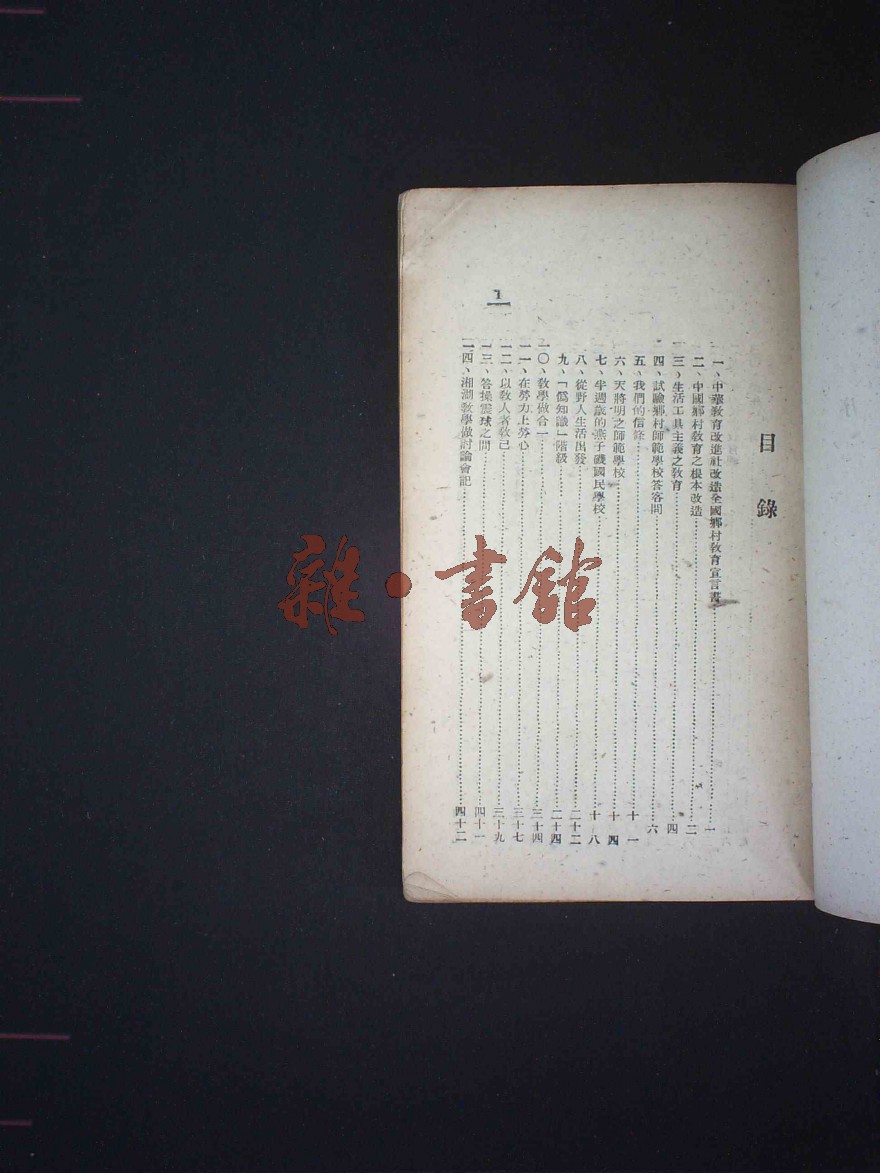 目錄
一、中華教育改進社改造全國鄉村教育宣言書…………一
二、中國鄉村教育之根本改造…………二
三、生活工具主義之教育…………四
四、試驗鄉村師範學校答客問…………六
五、我們的信條…………十一
六、天將明之師範學校…………十四
七、半週歲的燕子磯國民學校…………十八
八、從野人生活出發…………二十二
九、「僞知識」階級…………二十四
一〇、教學做合一…………三十四
一一、在勞力上勞心…………三十七
一二、以教人者教己…………三十九
一三、答操震球之問…………四十一
一四、湘湖教學做討論會記…………四十二
1
雜·書館